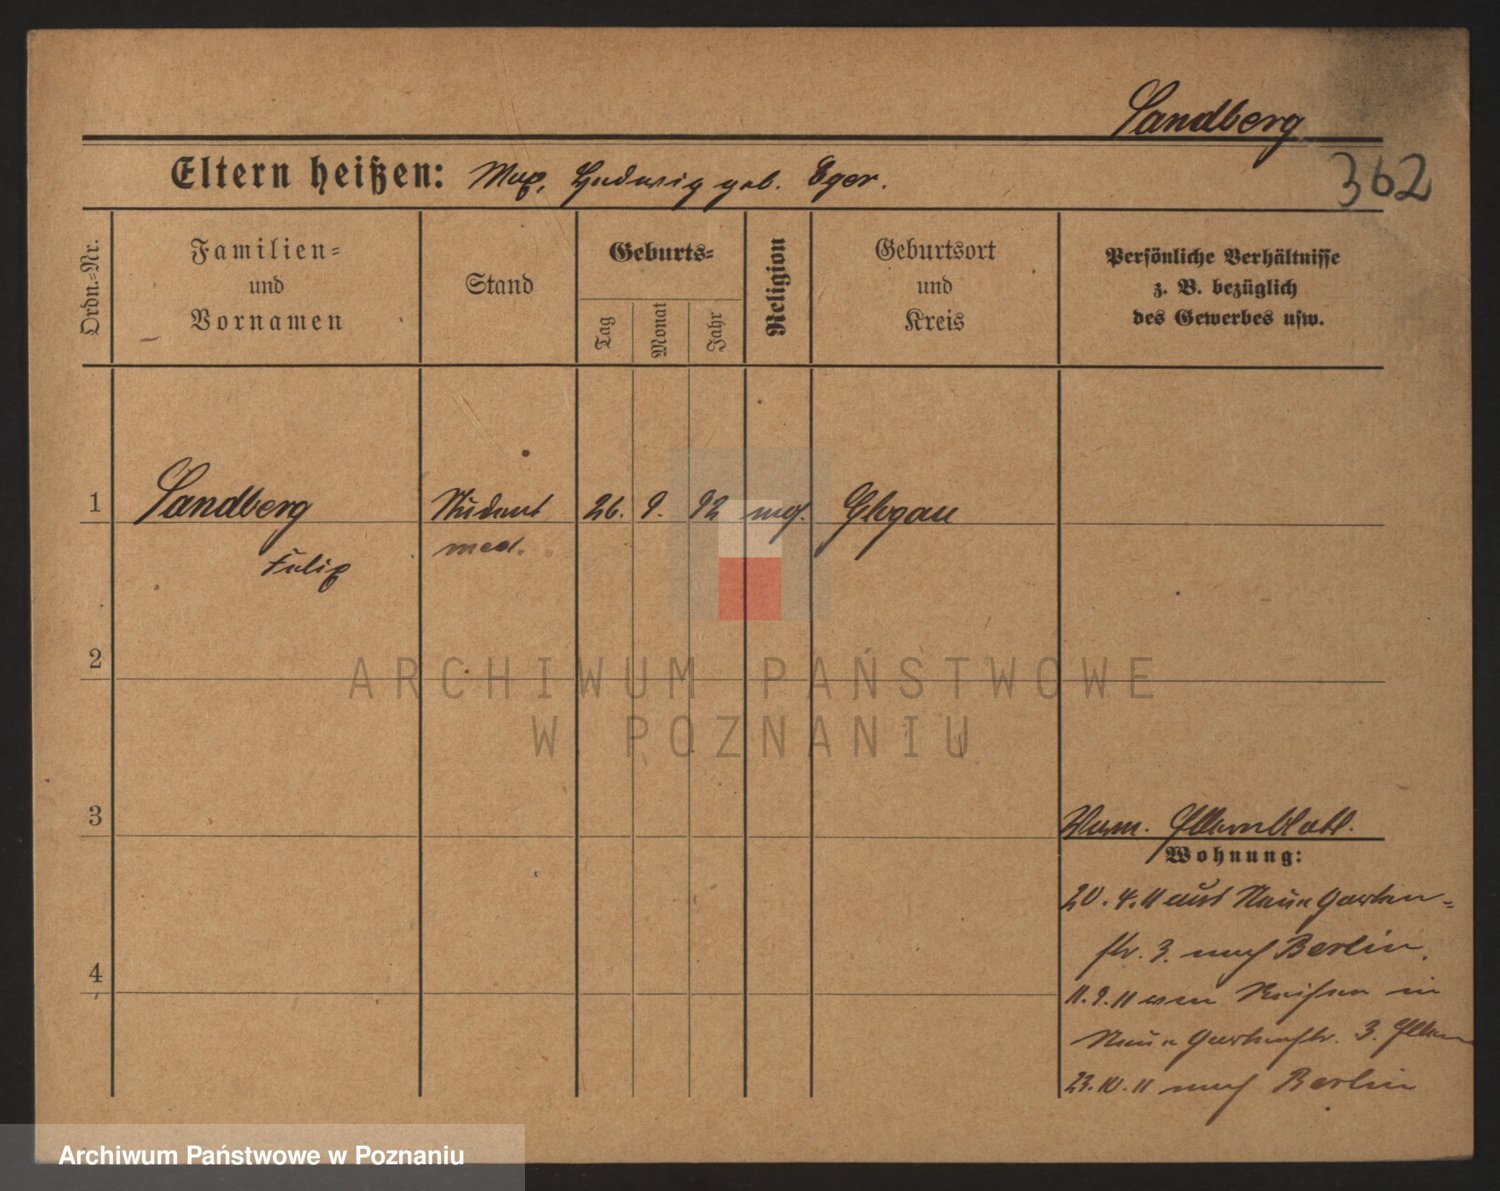 Sandberg
362
Eltern heißen: Max, Hedwig geb. Eger.
Ordn.-Nr.
Familien-
und
Vornamen
Stand
Geburts-
Tag
Monat
Jahr
Religion
Geburtsort
und
Kreis
Persönliche Verhältnisse
z. B. bezüglich
des Gewerbes usw.
1
Sandberg
Felix
Student
med.
26. 9. 92
Glogau
2
ARCHIWUM PAŃSTWOWE
W POZNANIU
3
Elternblatt.
Wohnung:
20.4.11 aus Neue Garten-
str. 3. nach Berlin.
11.9.11 von Reisen in
Neue Gartenstr. 3. Eltern
23.10.11 nach Berlin
4
Archiwum Państwowe w Poznaniu